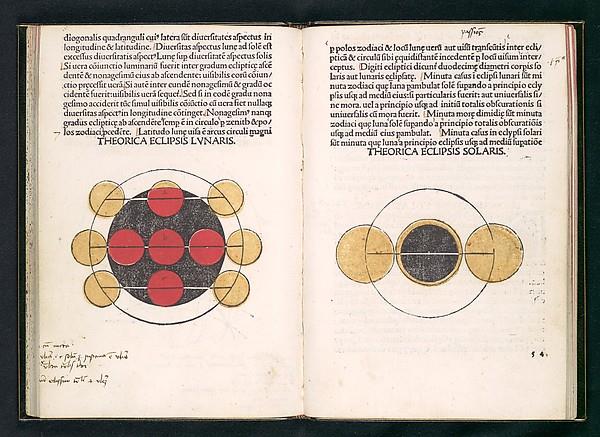 diogonalis quadranguli cui⁹ latera sũt diuersitates aspectus in
longitudine & latitudine. Diuersitas aspectus lunę ad solẽ est
excessus diuersitatis aspect⁹ Lunę sup̃ diuersitatẽ aspectus solis
Si uera cõiunctio luminariũ fuerit inter gradum eclipticę ascẽ
dentẽ & nonagesimũ eius ab ascendente: uisibilis eorũ cõiun/
ctio pręcessit uerã. Si aũt inter eundẽ nonagesimũ & gradũ oc
cidentẽ fuerit: uisibilis uerã sequet̃. Sed si in codẽ gradu nona
gesimo acciderit tũc simul uisibilis cõiũctio cũ uera fiet nullaq̃
diuersitas aspect⁹ in longitudine cõtinget. Nonagesim⁹ nanq̃
gradus eclipticę ab ascẽdẽte sẽmp ẽ in circulo p̱ zenith & po/
los zodiaci p̱cedẽte. Latitudo lunę uisa ẽ arcus circuli magni
THEORICA ECLIPSIS LVNARIS.
p̱ polos zodiaci & locũ lunę uerũ aut uisũ transeũtis inter ecli/
pticã & circulũ sibi equidistantẽ incedentẽ p̱ locũ uisum inter/
ceptus. Digiti ecliptici dicunt̃ duodecimę diametri corpis so
laris aut lunaris eclipsatę. Minuta casus ĩ eclipsi lunari sũt mi
nuta zodiaci quę luna pambulat solẽ supando a principio ecly
psis usq̃ ad mediũ eius: si particularis fuerit: aut uniuersalis si/
ne mora. uel a principio usq̃ ad initiũ totalis obscurationis si
uniuersalis cũ mora fuerit. Minuta morę dimidię sũt minuta
zodiaci quę luna solẽ supando a principio totalis obscuratiõis
usq̃ ad mediũ eius pambulat. Minuta casus in eclypsi solari
sũt minuta quę luna a principio eclipsis usq̃ ad mediũ supatiõe
THEORICA ECLIPSIS SOLARIS.
54